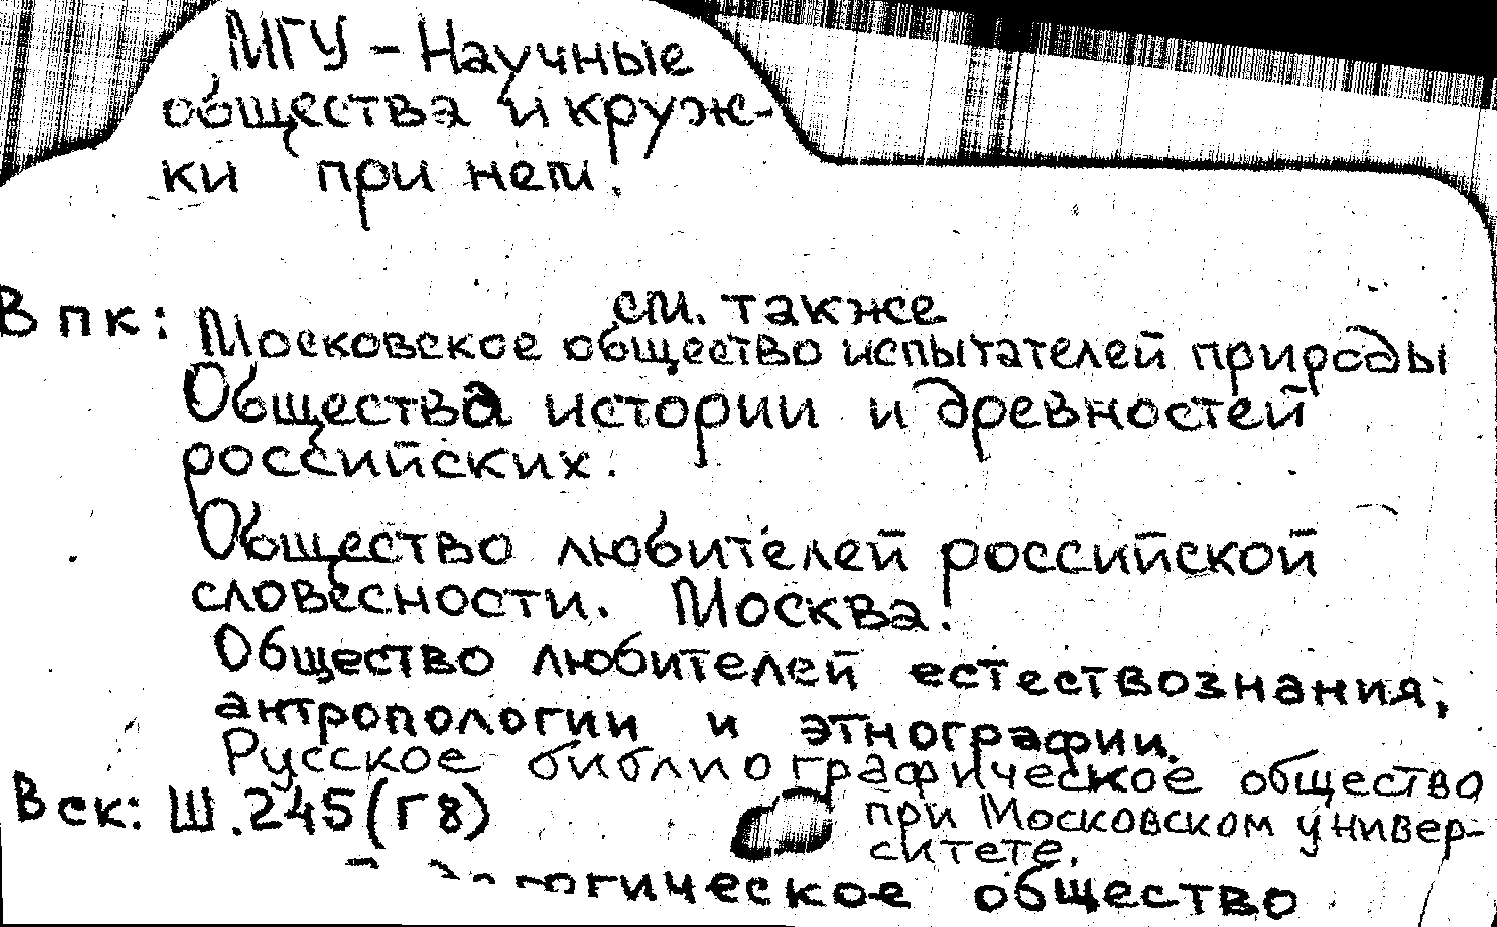 МГУ - Научные
общества и круж-
ки при нем.
см. также
В пк: Московское общество испытателей природы
Общества истории и древностей
российских.
Общество любителей российской
словесности. Москва.
Общество любителей естествознания,
антропологии и этнографии.
Русское библиографическое общество
В ск: Ш.245(Г8) при Московском универ-
ситете.
общество